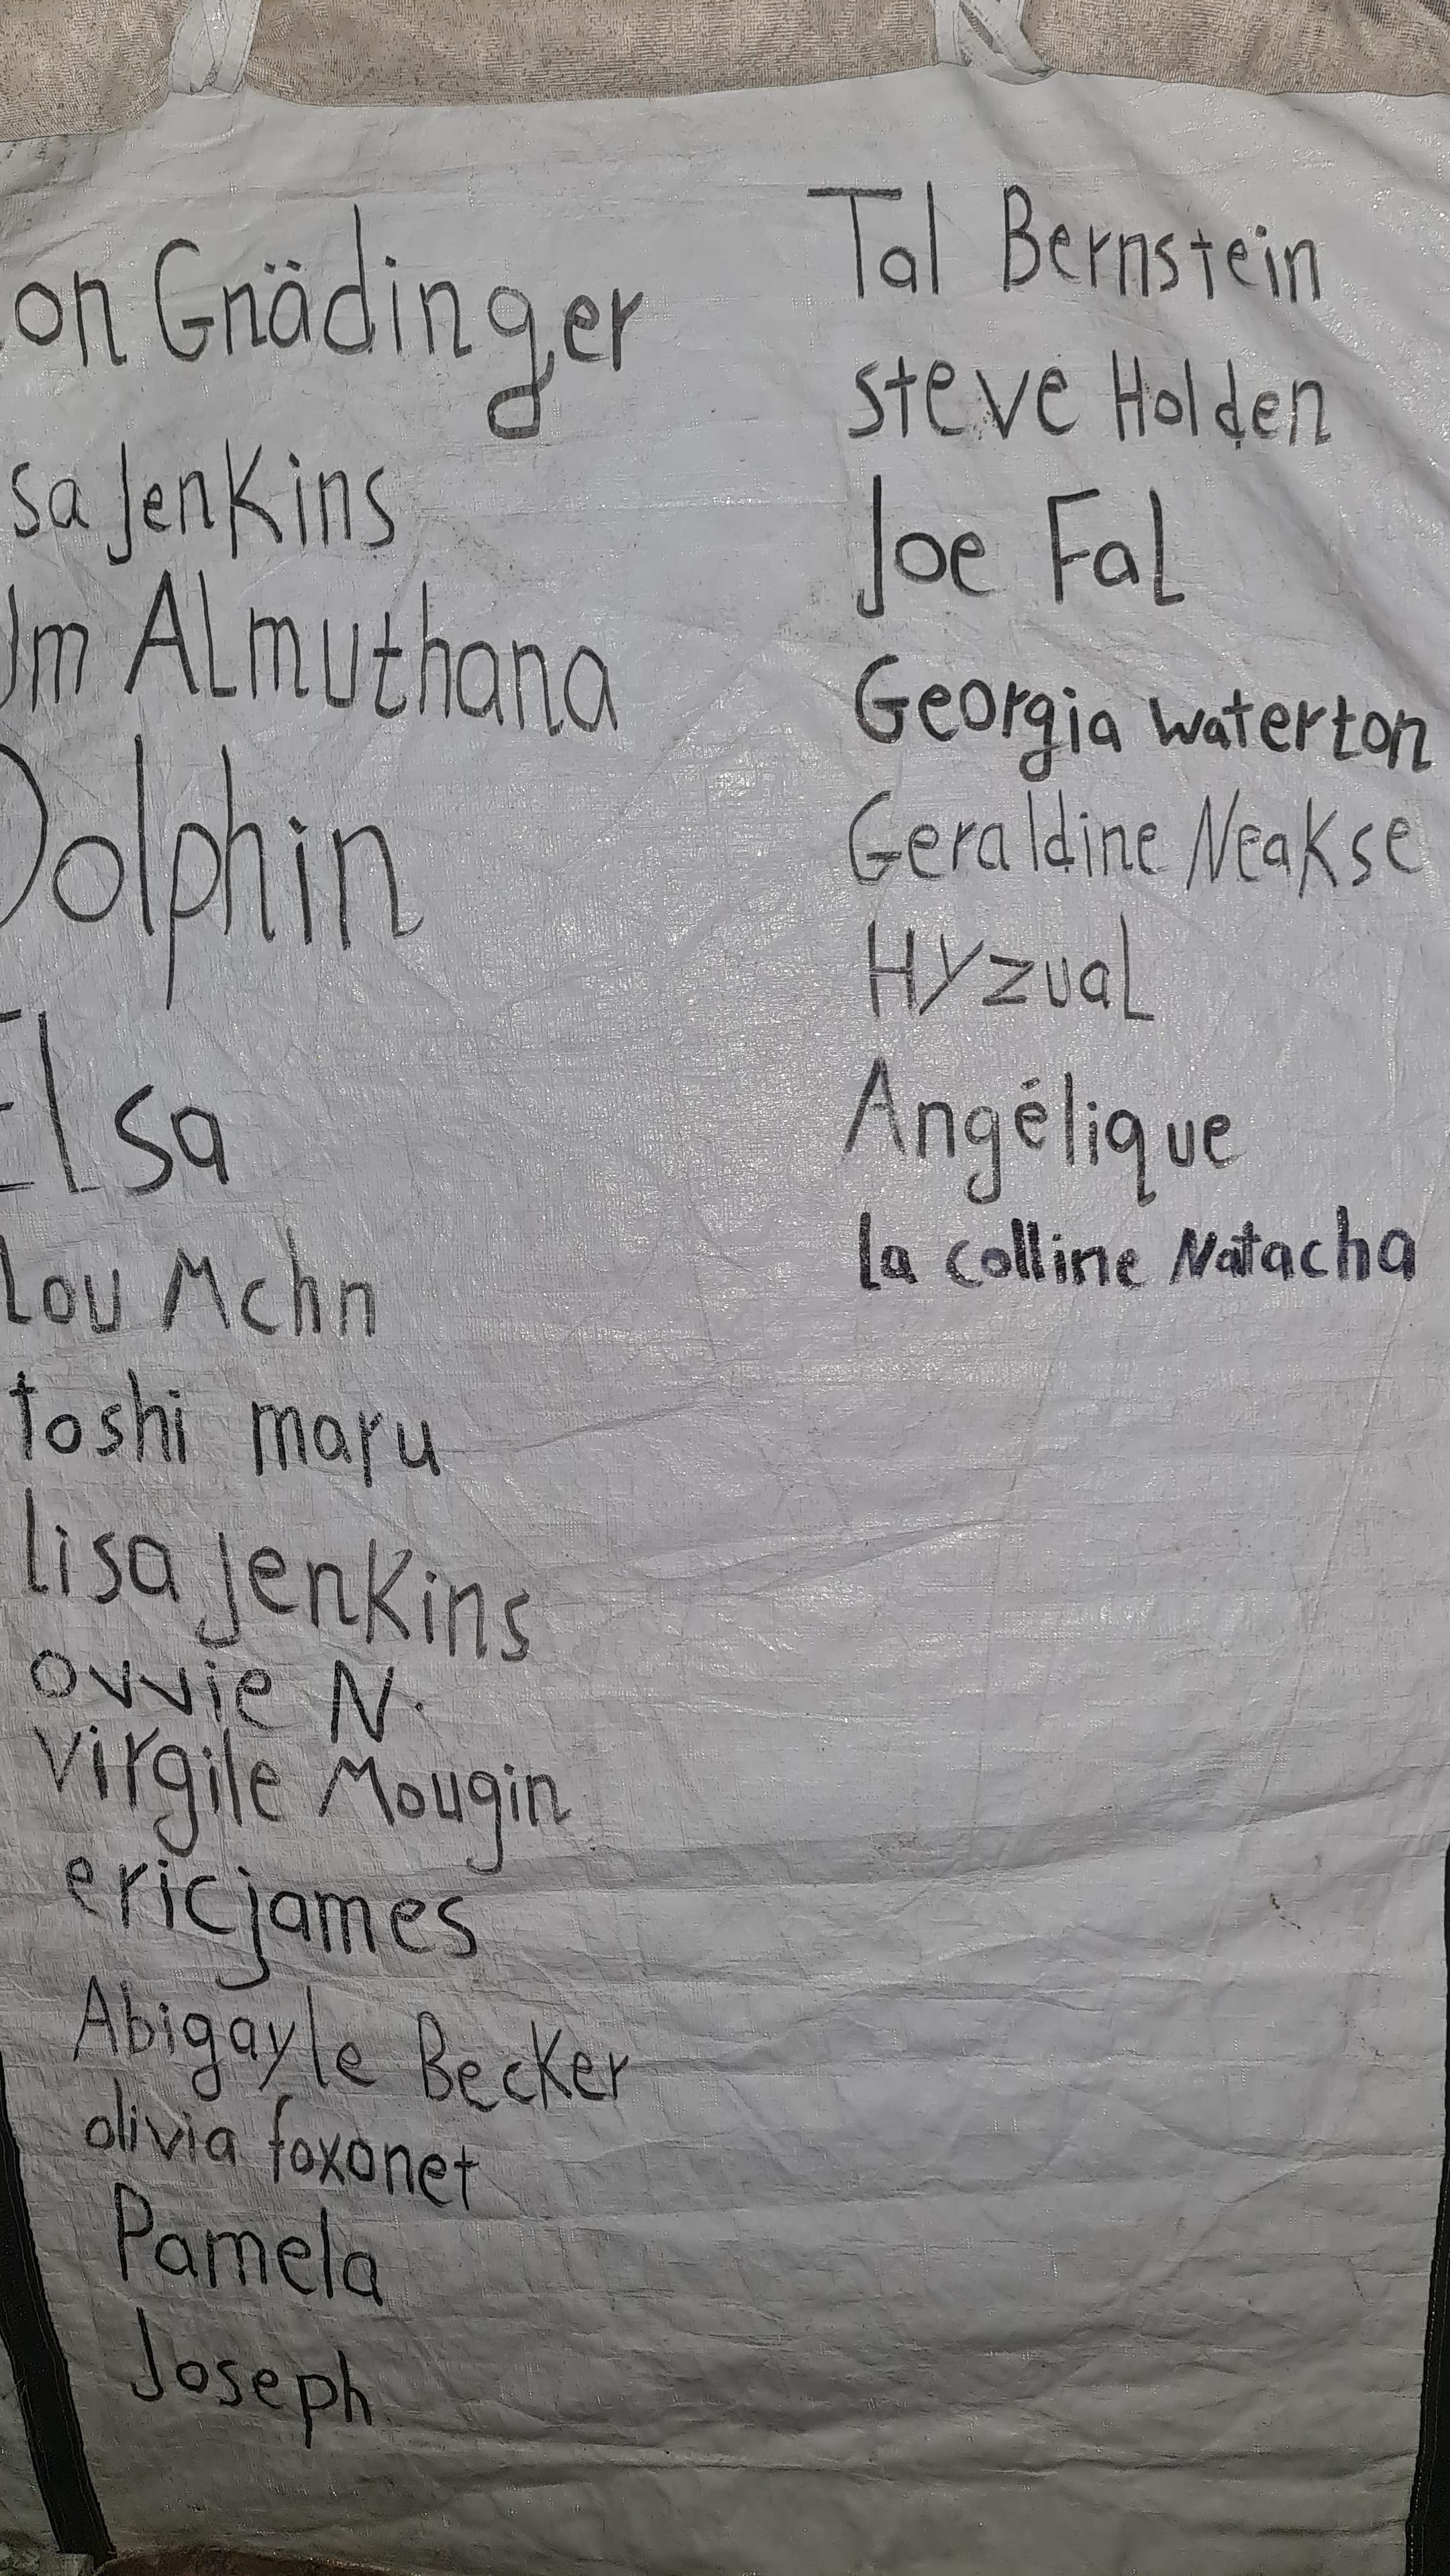 on Gnädinger
sa Jenkins
Um Almuthana
Dolphin
Elsa
Lou Mchn
toshi maru
lisa jenkins
ovvie N.
virgile Mougin
ericjames
Abigayle Becker
olivia foxonet
Pamela
Joseph
Tal Bernstein
steve Holden
Joe Fal
Georgia waterton
Geraldine Neakse
Hyzual
Angélique
la colline Natacha